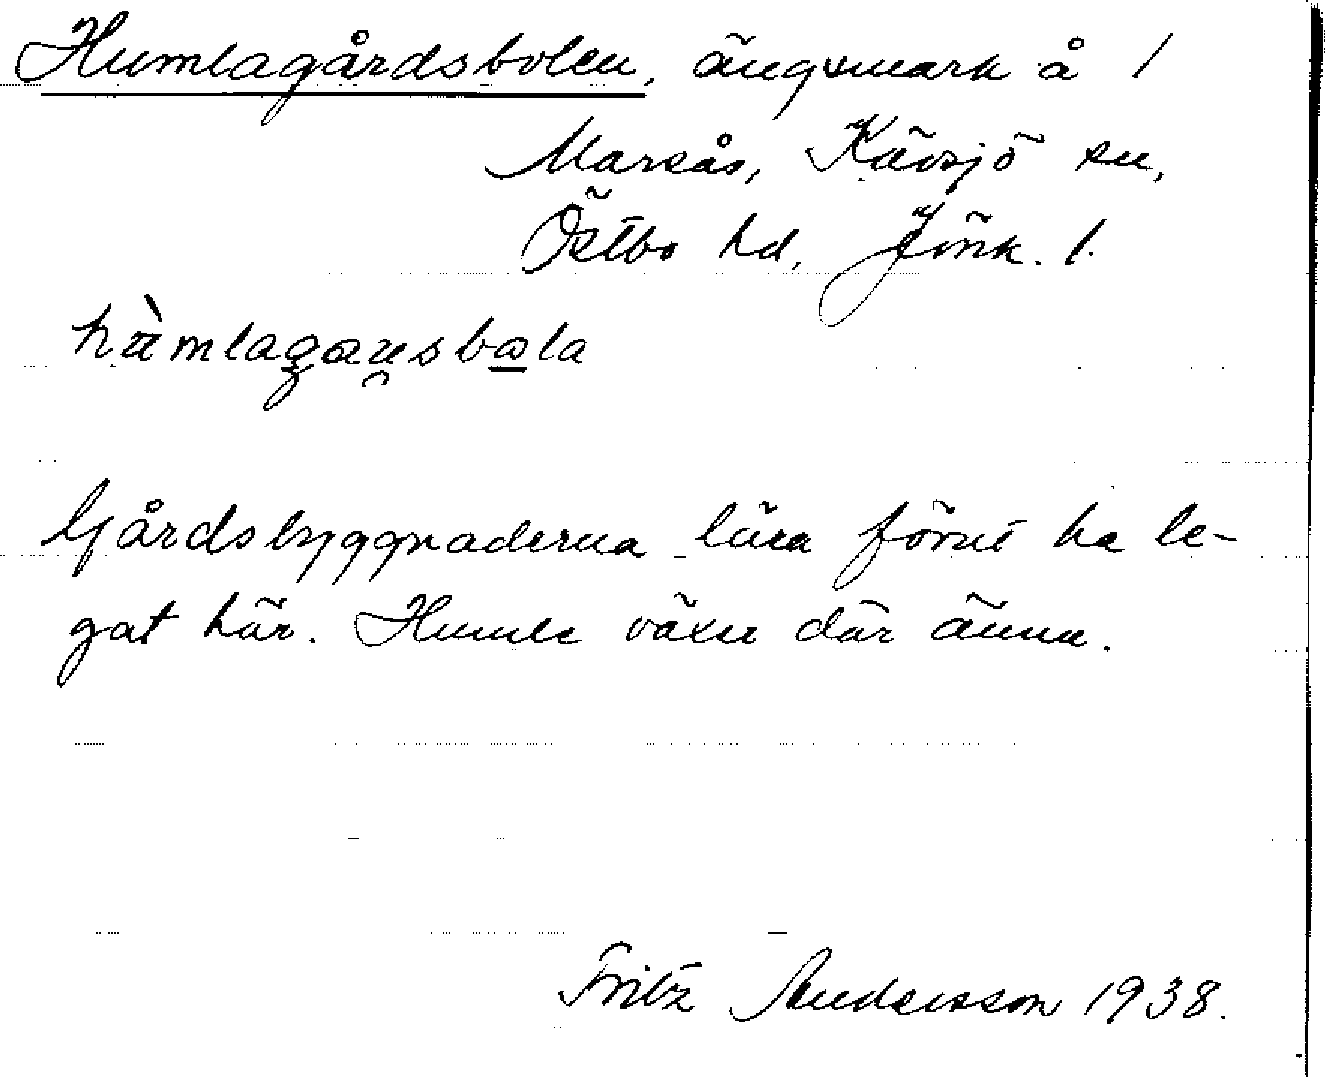 Humlagårdsbolen, ängsmark å 1
Marsås, Kävsjö sn,
Östbo hd, Jönk. l.
Gårdsbyggnaderna lära förut ha le-
gat här. Humle växer där ännu.
Fritz Andersson 1938.